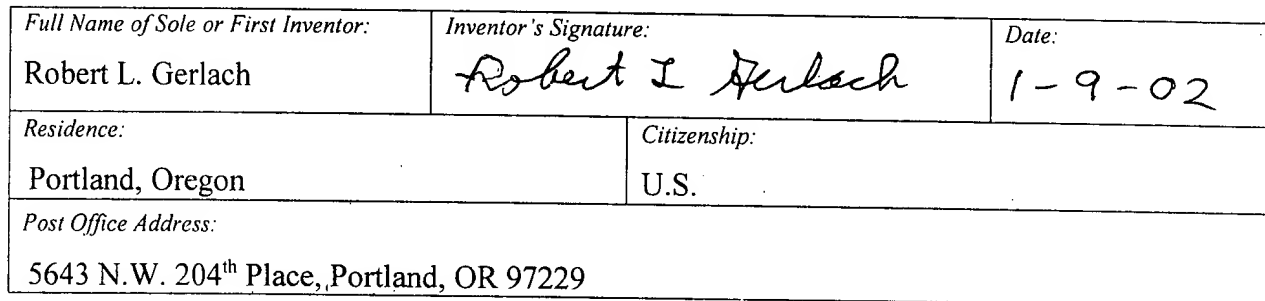 Full Name of Sole or First Inventor:
Robert L. Gerlach
Inventor's Signature:
Robert L Gerlach
Date:
1-9-02
Residence:
Portland, Oregon
Citizenship:
U.S.
Post Office Address:
5643 N.W. 204th Place, Portland, OR 97229